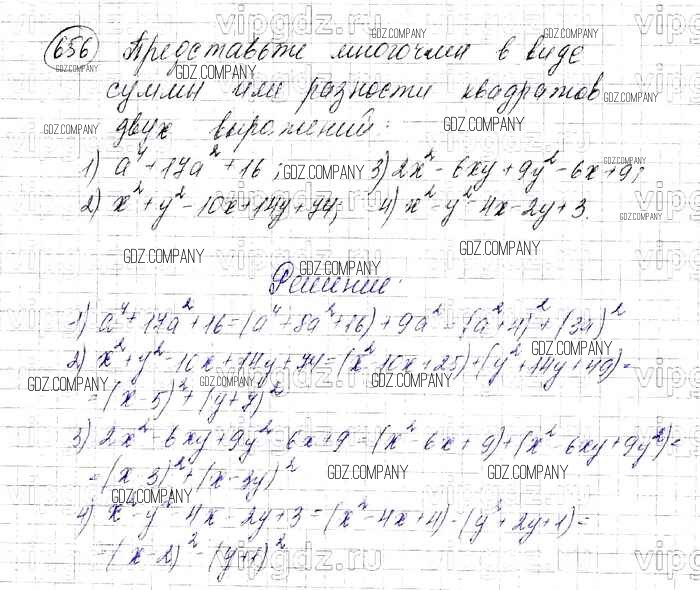 656 Представьте многочлен в виде
суммы или разности квадратов
двух выражений:
1) a⁴+17a²+16; 3) 2x²-6xy+9y²-6x+9;
2) x²+y²-10x+14y+74; 4) x²-y²-4x-2y+3.
Решение:
1) a⁴+17a²+16=(a⁴+8a²+16)+9a²=(a²+4)²+(3a)²
2) x²+y²-10x+14y+74=(x²-10x+25)+(y²+14y+49)=
=(x-5)²+(y+7)²
3) 2x²-6xy+9y²-6x+9=(x²-6x+9)+(x²-6xy+9y²)=
=(x-3)²+(x-3y)²
4) x²-y²-4x-2y+3=(x²-4x+4)-(y²+2y+1)=
=(x-2)²-(y+1)²
GDZ.COMPANY
vipgdz.ru